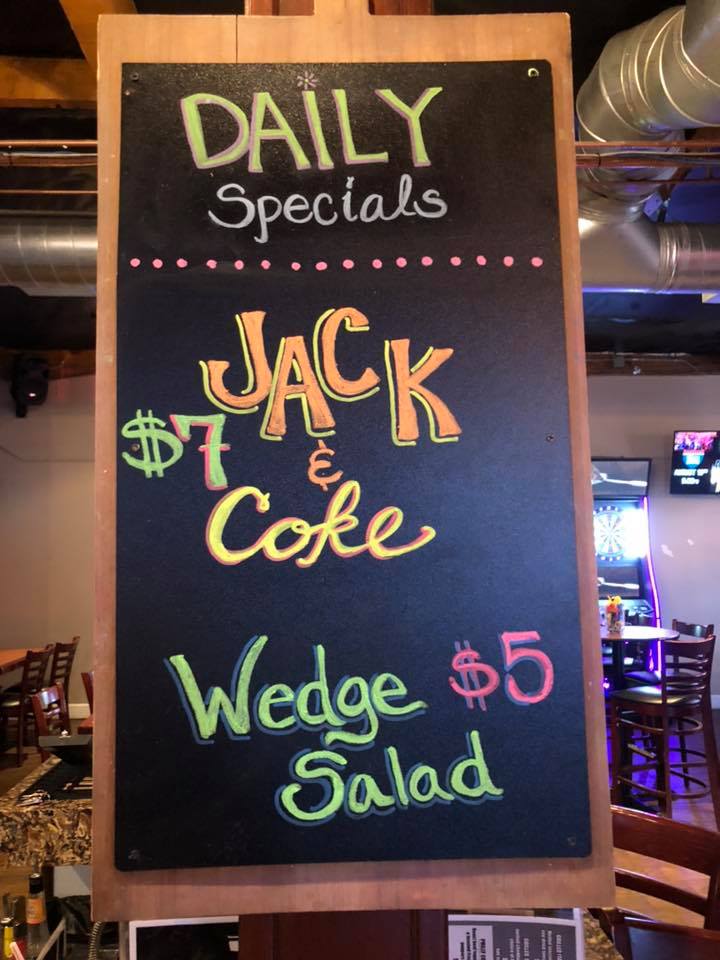 DAILY
Specials
JACK
$7
&
Coke
Wedge $5
Salad
AUGUST